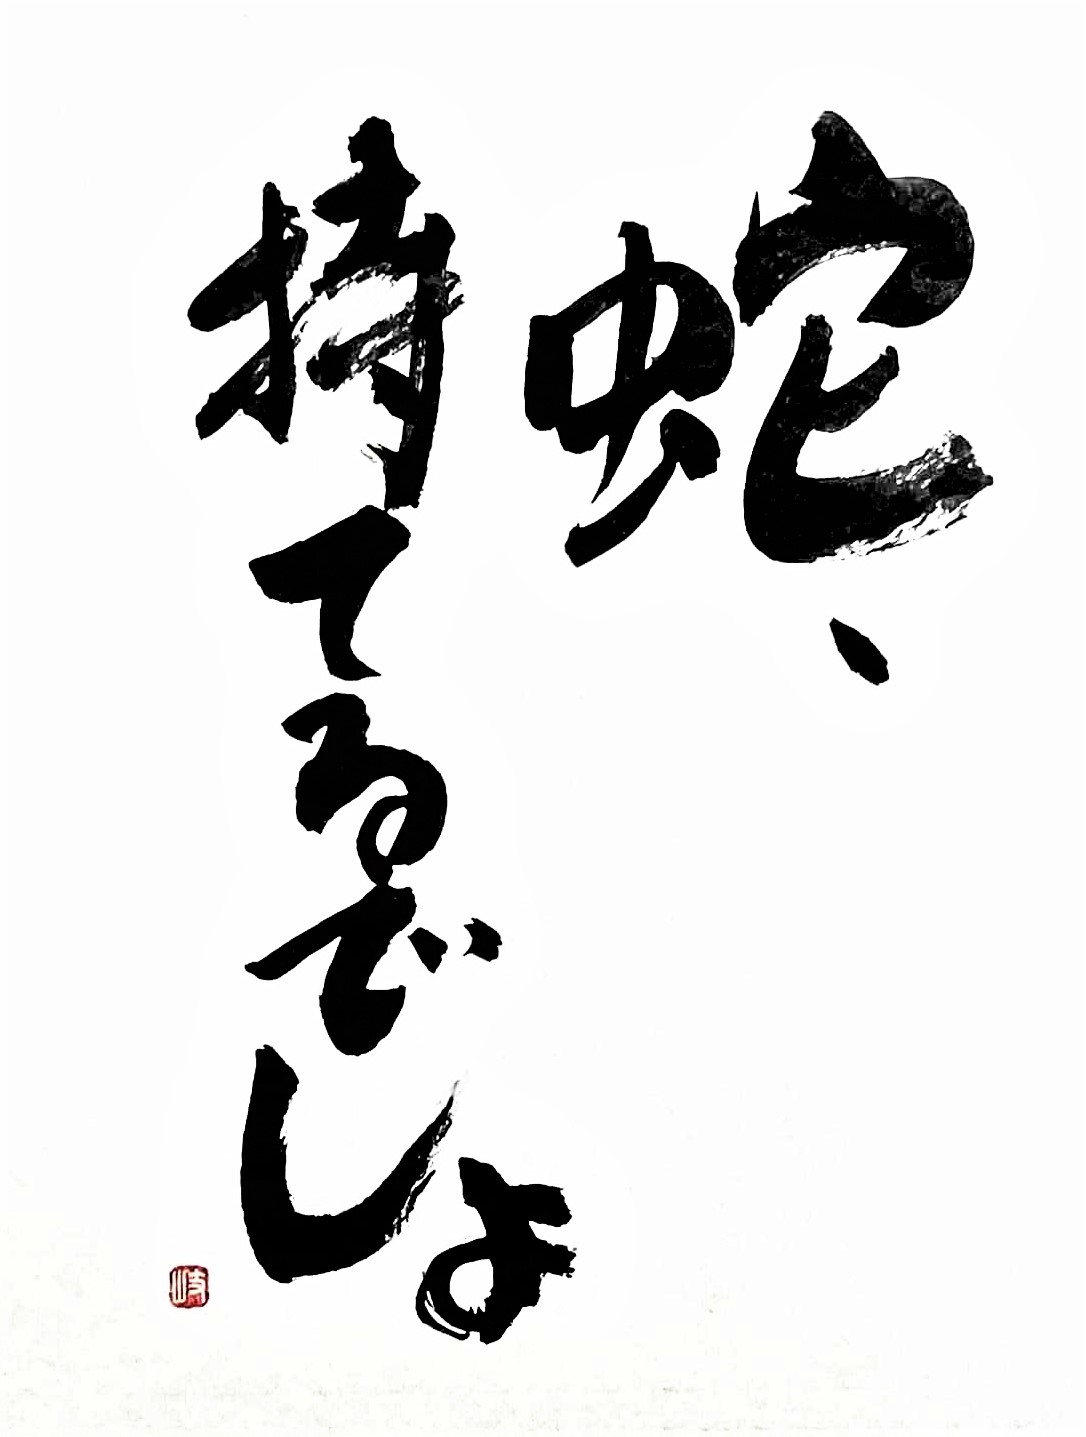 蛇、
持てるでしょ
岐